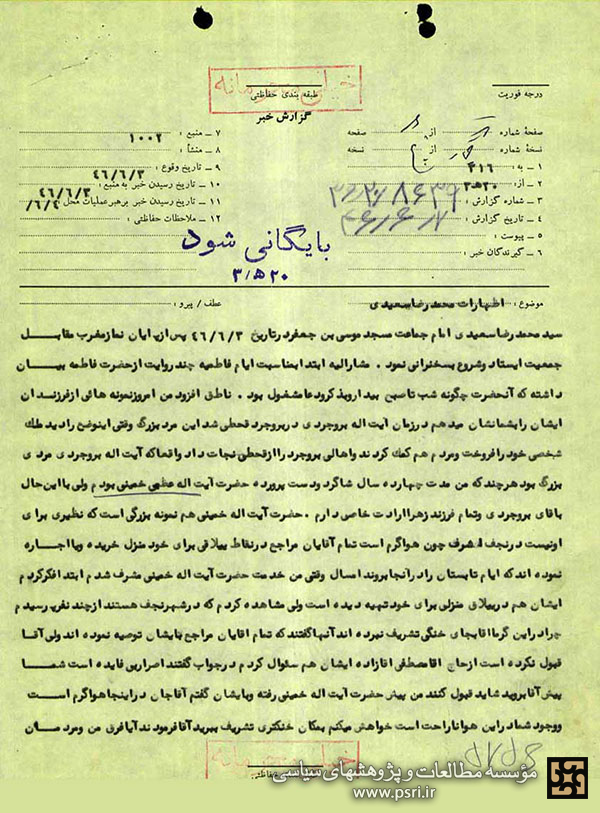 خیلی محرمانه
درجه فوریت
طبقه بندی حفاظتی
گزارش خبر
صفحهٔ شماره : از صفحه
نسخهٔ شماره : از نسخه
۱ ــ به : ۴۱۶
۲ ــ از : ۲۰ه۳
۳ ــ شماره گزارش :
۴ ــ تاریخ گزارش :
۵ ــ پیوست :
۶ ــ گیرندگان خبر :
۷ ــ منبع : ۱۰۰۲
۸ ــ منشأ :
۹ ــ تاریخ وقوع : ۴۶/۶/۳
۱۰ ــ تاریخ رسیدن خبر به منبع : ۴۶/۶/۳
۱۱ ــ تاریخ رسیدن خبر برهبرعملیات محل :
۱۲ ــ ملاحظات حفاظتی :
بایگانی شود
۲۰ه۳
موضوع : اظهارات محمدرضا سعیدی
عطف / پیرو :
سید محمد رضا سعیدی امام جماعت مسجد موسی بن جعفر در تاریخ ۴۶/۶/۳ پس از پایان نماز مغرب مقابل
جمعیت ایستاد و شروع بسخنرانی نمود . مشارالیه ابتدا بمناسبت ایام فاطمیه چند روایت از حضرت فاطمه بیان
داشته که آنحضرت چگونه شب تا صبح بیدار و بذکر و دعا مشغول بود . ناطق افزود من امروز نمونه هائی از فرزندان
ایشان را بشما نشان میدهم در زمان آیت اله بروجردی در بروجرد قحطی شد این مرد بزرگ وقتی اینوضع را دید ملک
شخصی خود را فروخت و مردم هم کمک کردند و اهالی بروجرد را از قحطی نجات داد واقعا که آیت اله بروجردی مردی
بزرگ بود هرچند که من مدت چهارده سال شاگرد و دست پرورده حضرت آیت اله عظمی خمینی بودم ولی با این حال
باقای بروجردی و تمام فرزند زهرا ارادت خاصی دارم . حضرت آیت اله خمینی هم نمونه بزرگی است که نظیری برای
او نیست در نجف اشرف چون هوا گرم است تمام آقایان مراجع در نقاط ییلاقی برای خود منزل خریده و یا اجاره
نموده اند که ایام تابستان را در آنجا بروند امسال وقتی من خدمت حضرت آیت اله خمینی مشرف شدم ابتدا فکر کردم
ایشان هم در ییلاق منزلی برای خود تهیه دیده است ولی مشاهده کردم که در شهر نجف هستند از چند نفر پرسیدم
چرا در این گرما اقا بجای خنکی تشریف نبرده اند آنها گفتند که تمام اقایان مراجع بایشان توصیه نموده اند ولی آقا
قبول نکرده است از حاج اقا مصطفی اقازاده ایشان هم سئوال کردم در جواب گفتند اصرار بی فایده است شما
پیش آقا بروید شاید قبول کنند من پیش حضرت آیت اله خمینی رفته و بایشان گفتم آقا جان در اینجا هوا گرم است
و وجود شما در این هوا ناراحت است خواهش میکنم بمکان خنکتری تشریف ببرید آقا فرمودند آیا فرق من و مردمان
خیلی محرمانه
حفاظتی
مؤسسه مطالعات و پژوهشهای سیاسی
www.psri.ir